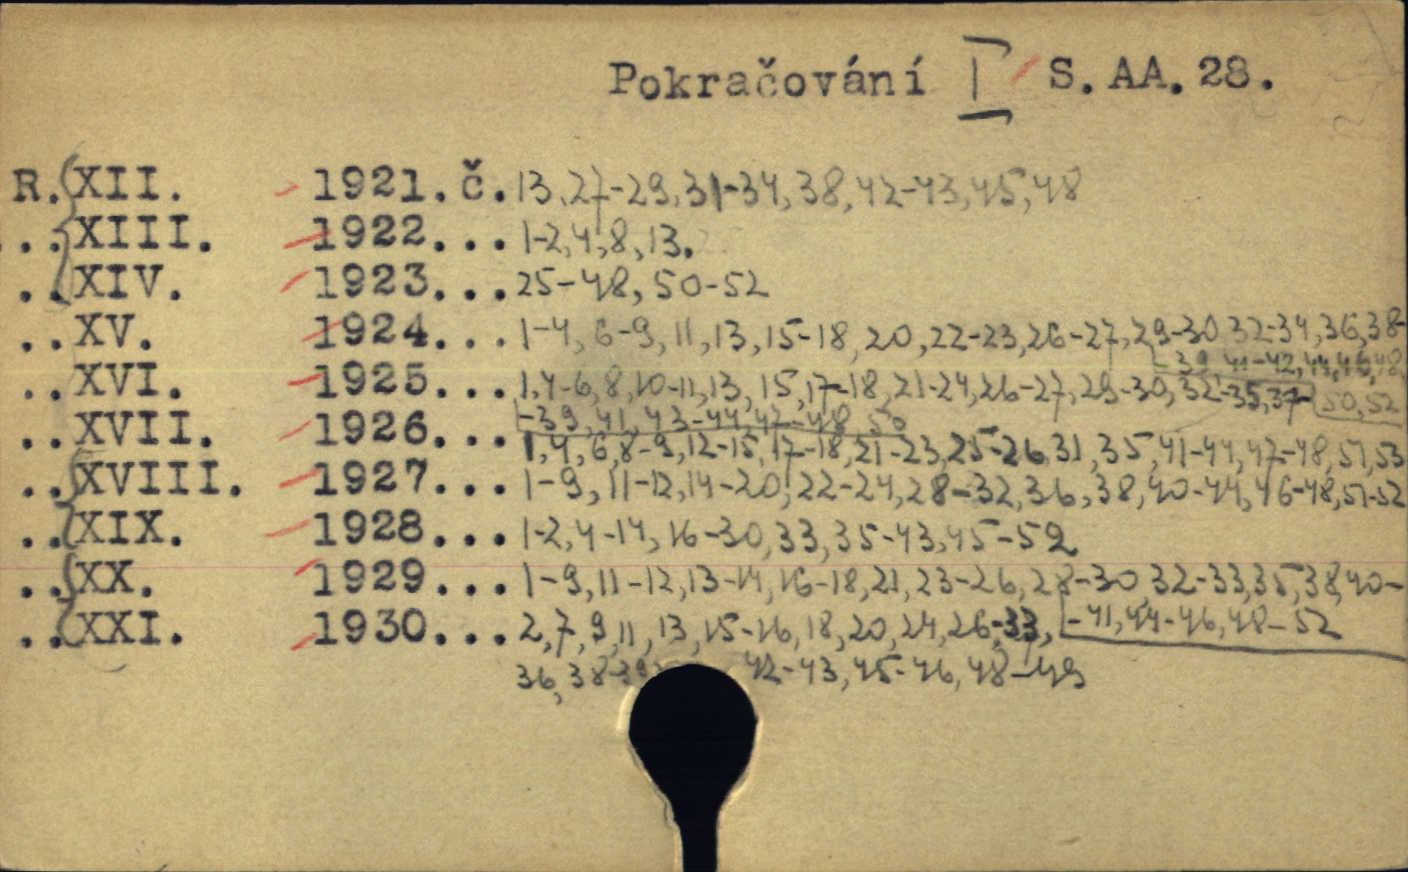 Pokračování I S. AA. 28.
R. XII. 1921. č. 13, 27-29, 31-34, 38, 42-43, 45, 48
.. XIII. 1922... 1-2, 4, 8, 13.
.. XIV. 1923... 25-48, 50-52
.. XV. 1924... 1-4, 6-9, 11, 13, 15-18, 20, 22-23, 26-27, 29-30, 32-34, 36, 38-
-39, 41-42, 44, 46, 48,
50, 52
.. XVI. 1925... 1, 4-6, 8, 10-11, 13, 15, 17-18, 21-24, 26-27, 29-30, 32-35, 37-
-39, 41, 43-44, 47-48, 50
.. XVII. 1926... 1, 4, 6, 8-9, 12-15, 17-18, 21-23, 25-26, 31, 35, 41-44, 47-48, 51, 53
.. XVIII. 1927... 1-9, 11-12, 14-20, 22-24, 28-32, 36, 38, 40-44, 46-48, 51-52
.. XIX. 1928... 1-2, 4-14, 16-30, 33, 35-43, 45-52
.. XX. 1929... 1-9, 11-12, 13-14, 16-18, 21, 23-26, 28-30, 32-33, 35, 38, 40-
-41, 44-46, 48-52
.. XXI. 1930... 2, 7, 9, 11, 13, 15-16, 18, 20, 24, 26-33,
36, 38-39, 42-43, 45-46, 48-49